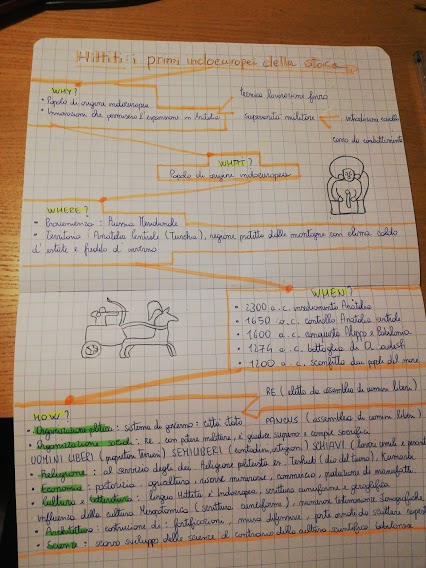 Hittiti: i primi indoeuropei della storia
WHY?
• Popolo di origine indoeuropea
• Innovazioni che permisero l'espansione in Anatolia
tecnica lavorazione ferro
superiorità militare
introduzione cavallo
carro da combattimento
WHAT?
Popolo di origine indoeuropea
WHERE?
• Provenienza: Russia Meridionale
• Territorio: Anatolia Centrale (Turchia), regione protetta dalle montagne con clima caldo
d'estate e freddo d'inverno
WHEN?
• 2300 a.c. insediamento Anatolia
• 1650 a.c. controllo Anatolia centrale
• 1600 a.c. conquista Aleppo e Babilonia
• 1274 a.c. battaglia di Qadesh
• 1200 a.c. sconfitta dai popoli del mare
RE (eletto da assemblea di uomini liberi)
HOW?
• Organizzazione politica: sistema di governo: città stato
PANKUS (assemblea di uomini liberi)
• Organizzazione sociale: Re, con potere militare, è giudice supremo e compie sacrifici
UOMINI LIBERI (proprietari terrieri) SEMILIBERI (contadini, artigiani) SCHIAVI (lavori umili e pesanti)
• Religione: al servizio degli dei. Religione politeista es. Teshub (dio del tuono), Kumarbi
• Economia: pastorizia, agricoltura, risorse minerarie, commercio, produzione di manufatti
• Cultura e letteratura: lingua Hittita e Indoeuropea, scrittura cuneiforme e geroglifica
influenza della cultura Mesopotamica (scrittura cuneiforme), numerose testimonianze storiografiche
• Architettura: costruzione di: fortificazioni, mura difensive, porte ornate da sculture
• Scienze: scarso sviluppo delle scienze al contrario della cultura scientifica babilonese